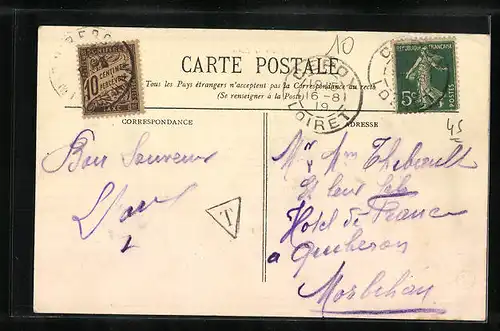 10
CARTE POSTALE
Tous les Pays étrangers n'acceptent pas la Correspondance au recto
(Se renseigner à la Poste)
10 CENTIMES
À PERCEVOIR
16-8
19
LOIRET
RÉPUBLIQUE FRANÇAISE
5c
POSTES
45
CORRESPONDANCE
ADRESSE
Bon Souvenir
T
Mr Mme Thebault
et leur
Hotel de France
a Quiberon
Morbihan